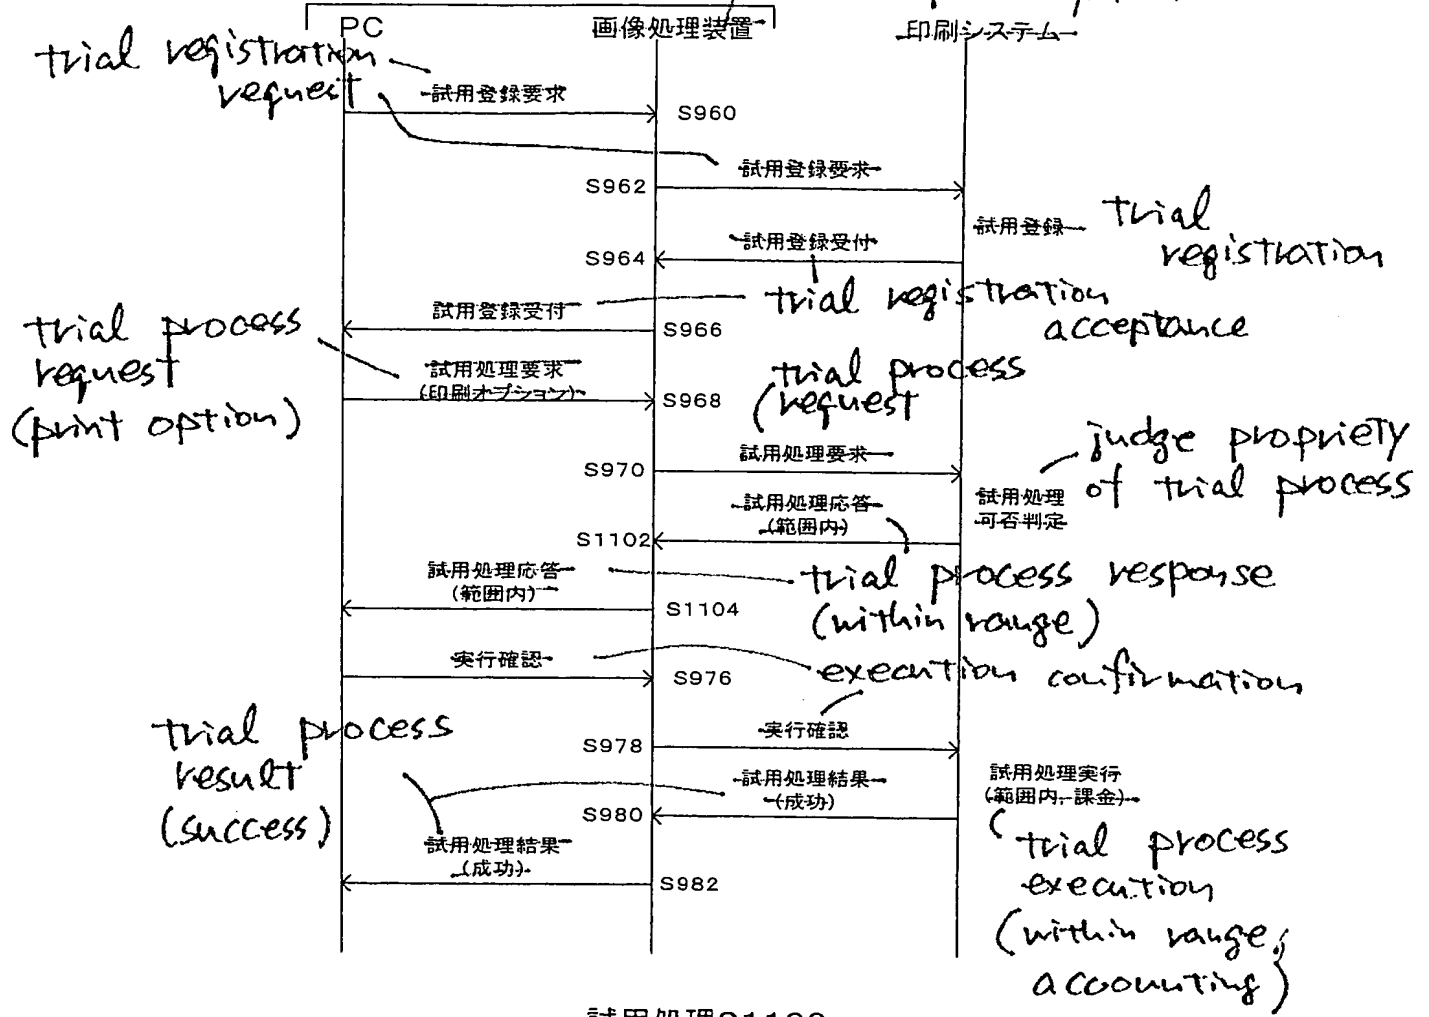 PC 画像処理装置 印刷システム
trial registration
request
試用登録要求
S960
試用登録要求
S962
試用登録
trial
registration
試用登録受付
S964
試用登録受付
trial registration
acceptance
S966
trial process
request
(print option)
試用処理要求
(印刷オプション)
S968
trial process
request
試用処理要求
S970
judge propriety
of trial process
試用処理
可否判定
試用処理応答
(範囲内)
S1102
試用処理応答
(範囲内)
S1104
trial process response
(within range)
実行確認
S976
execution confirmation
実行確認
S978
trial process
result
(success)
試用処理結果
(成功)
S980
試用処理実行
(範囲内,課金)
trial process
execution
(within range,
accounting)
試用処理結果
(成功)
S982